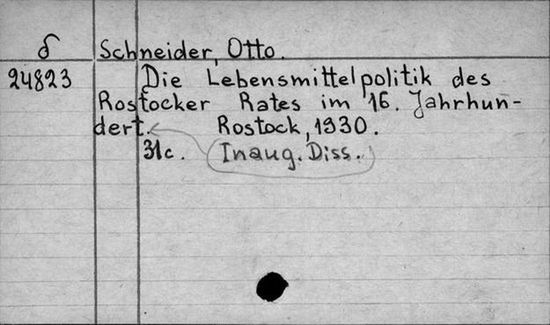 δ Schneider, Otto.
24823 Die Lebensmittelpolitik des
Rostocker Rates im 16. Jahrhun-
dert. Rostock, 1930.
31c. Inaug. Diss.